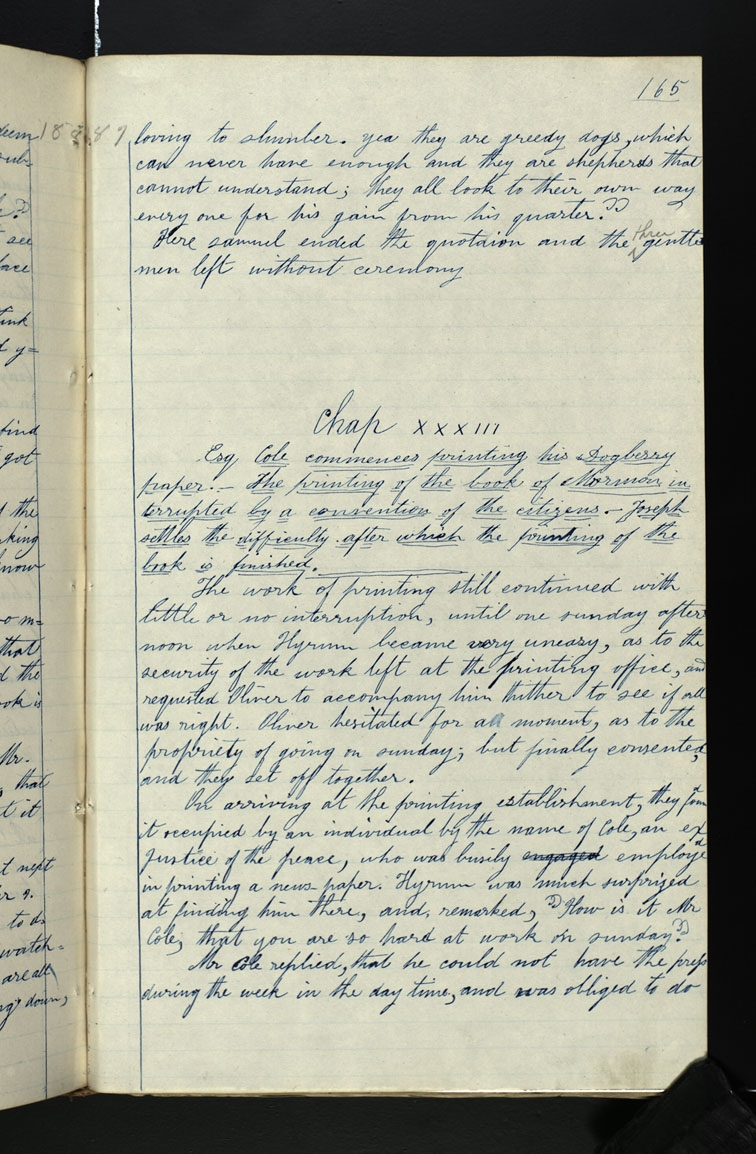 165
loving to slumber. yea they are greedy dogs, which
can never have enough and they are shepherds that
cannot understand; they all look to their own way
every one for his gain from his quarter."
Here samuel ended the quotaion and the three gentle
men left without ceremony
Chap XXXIII
Esq Cole commences printing his Dogberry
paper.— The printing of the book of Mormon in
terrupted by a convention of the citizens.— Joseph
settles the difficulty. after which the printing of the
book is finished.
The work of printing still continued with
little or no interruption, until one sunday after
noon when Hyrum became very uneasy, as to the
security of the work left at the printing office, and
requested Oliver to accompany him thither to see if all
was right. Oliver hesitated for a moment, as to the
propriety of going on sunday; but finally consented,
and they set off together.
On arriving at the printing establishment, they foun
it occupied by an individual by the name of Cole, an ex
Justice of the peace, who was busily engaged employed
in printing a news-paper. Hyrum was much surprized
at finding him there, and, remarked, "How is it Mr
Cole, that you are so hard at work on sunday?"
Mr Cole replied, that he could not have the press
during the week in the day time, and was obliged to do